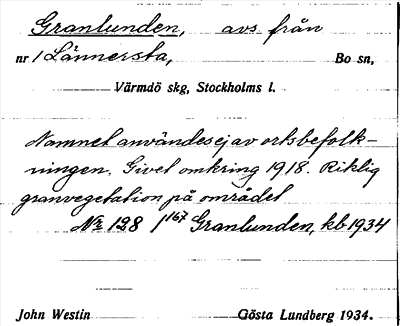 Granlunden, avs från
nr 1 Lännersta, Bo sn,
Värmdö skg, Stockholms l.
Namnet användes ej av ortsbefolk-
ningen. Givet omkring 1918. Riklig
granvegetation på området
Nr 128 1167 Granlunden, kb 1934
John Westin Gösta Lundberg 1934.